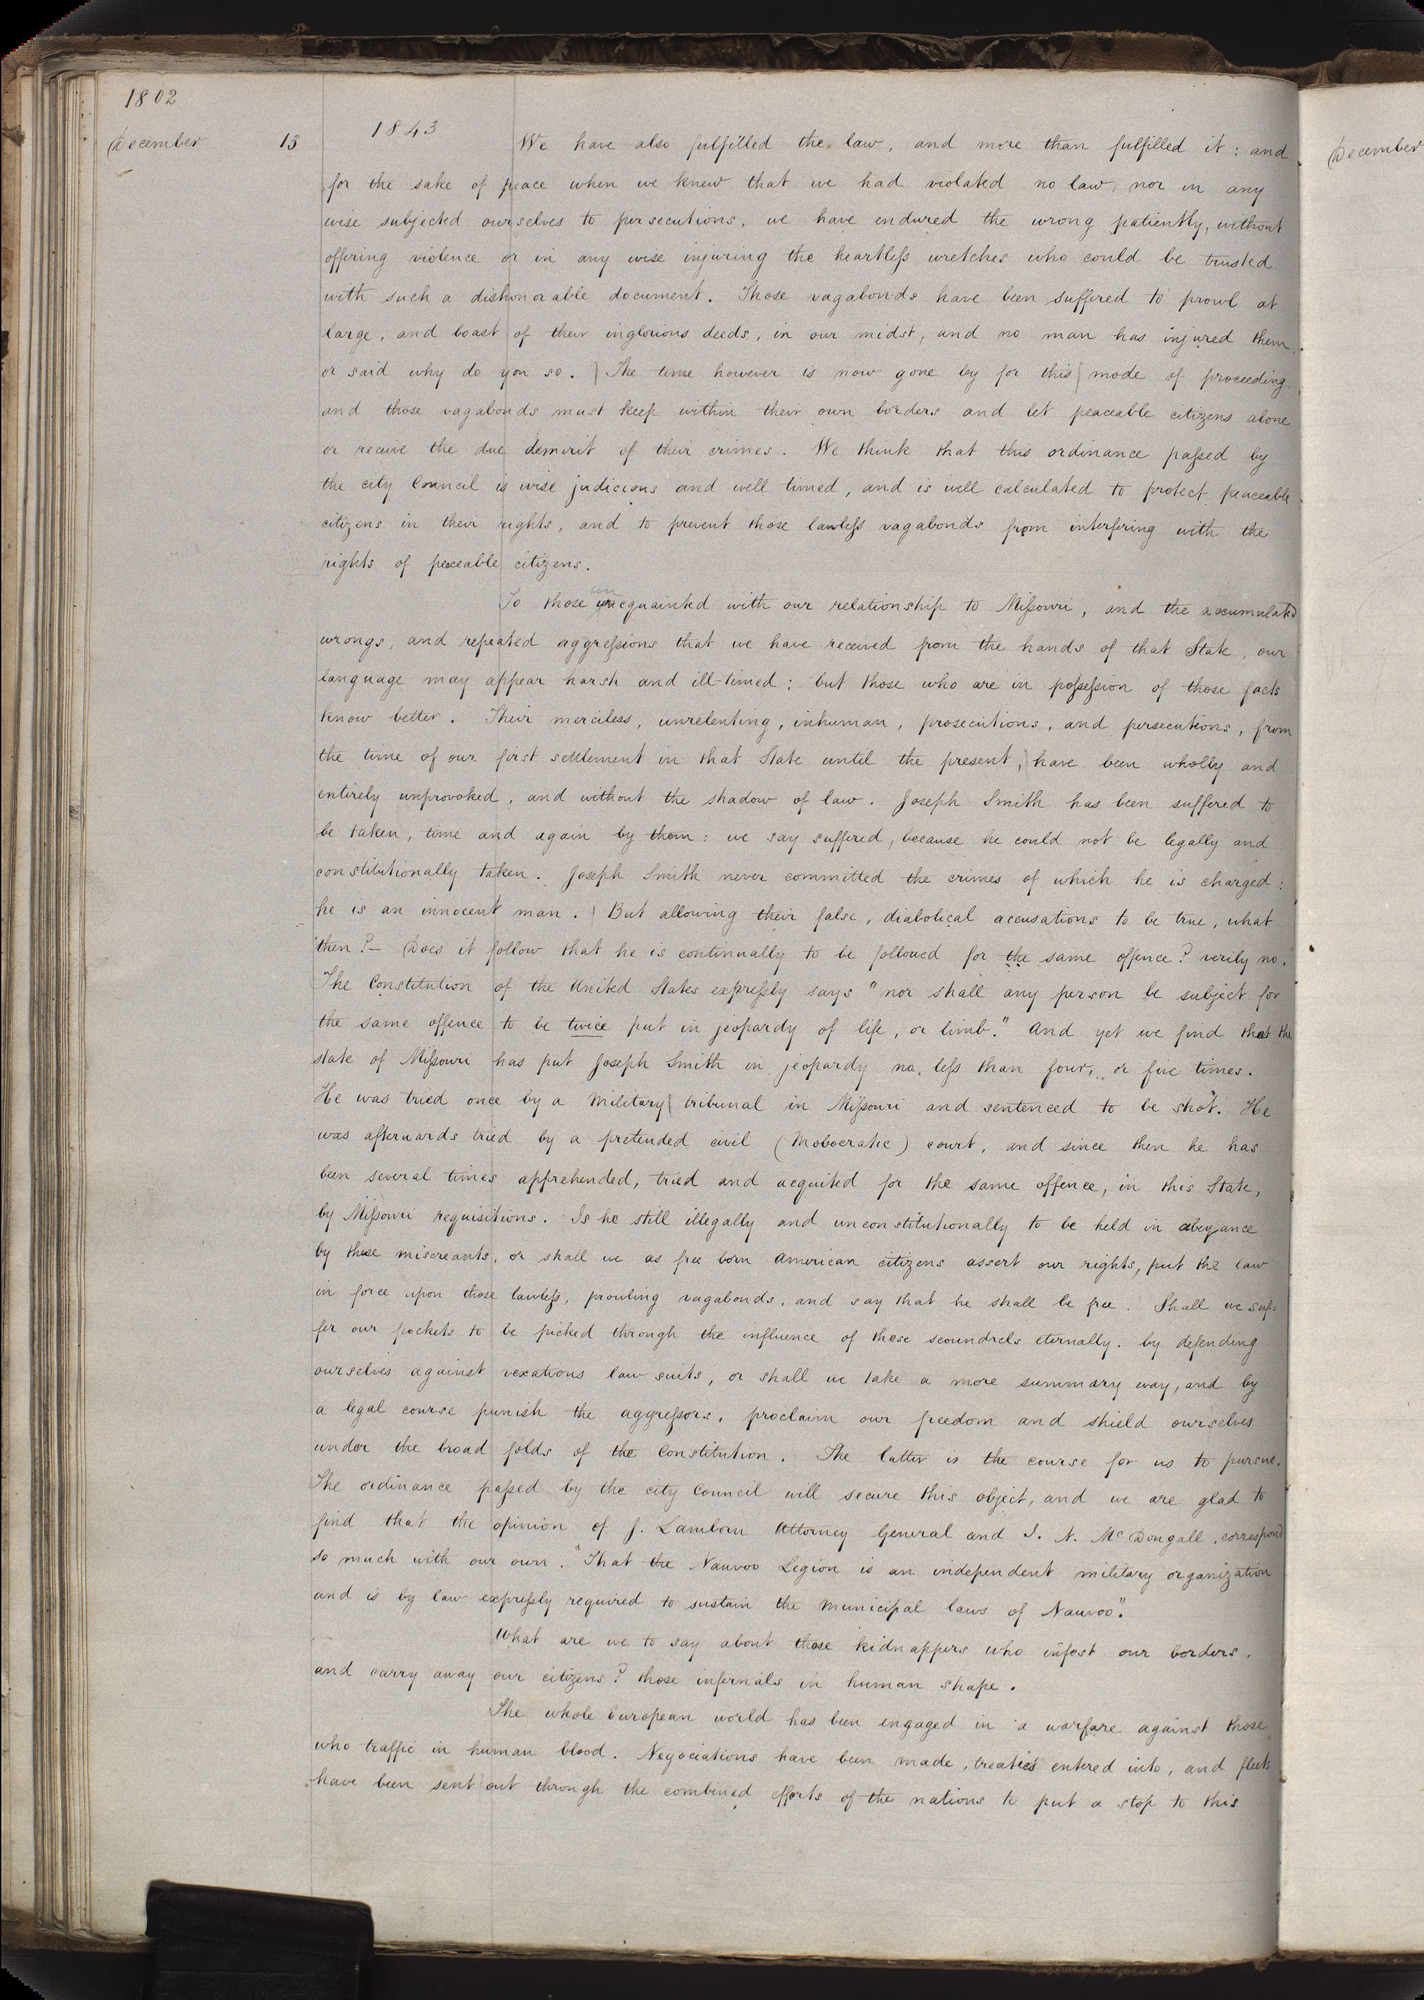 1802
December 13 1843 We have also fulfilled the law, and more than fulfilled it: and
for the sake of peace when we knew that we had violated no law, nor in any
wise subjected ourselves to persecutions, we have endured the wrong patiently, without
offering violence or in any wise injuring the heartless wretches who could be trusted
with such a dishonorable document. Those vagabonds have been suffered to prowl at
large, and boast of their inglorious deeds, in our midst, and no man has injured them,
or said why do you so. The time however is now gone by for this mode of proceeding
and those vagabonds must keep within their own borders and let peaceable citizens alone
or receive the due demerit of their crimes. We think that this ordinance passed by
the city Council is wise judicious and well timed, and is well calculated to protect peaceable
citizens in their rights, and to prevent those lawless vagabonds from interfering with the
rights of peaceable citizens.
To those unacquainted with our relationship to Missouri, and the accumulated
wrongs, and repeated aggressions that we have received from the hands of that State, our
language may appear harsh and ill-timed; but those who are in possession of those facts
know better. Their merciless, unrelenting, inhuman, prosecutions, and persecutions, from
the time of our first settlement in that State until the present, have been wholly and
entirely unprovoked, and without the shadow of law. Joseph Smith has been suffered to
be taken, time and again by them: we say suffered, because he could not be legally and
constitutionally taken. Joseph Smith never committed the crimes of which he is charged:
he is an innocent man. But allowing their false, diabolical accusations to be true, what
then?— Does it follow that he is continually to be followed for the same offence? verily no.
The Constitution of the United States expressly says "nor shall any person be subject for
the same offence to be twice put in jeopardy of life, or limb." And yet we find that the
state of Missouri has put Joseph Smith in jeopardy no less than four, or five times.
He was tried once by a Military tribunal in Missouri and sentenced to be shot. He
was afterwards tried by a pretended civil (Mobocratic) court, and since then he has
been several times apprehended, tried and acquited for the same offence, in this State,
by Missouri requisitions. Is he still illegally and unconstitutionally to be held in abeyance
by these miscreants, or shall we as free born American citizens assert our rights, put the law
in force upon those lawless, prowling vagabonds, and say that he shall be free. Shall we suf=
fer our pockets to be picked through the influence of these scoundrels eternally. by defending
ourselves against vexatious law suits, or shall we take a more summary way, and by
a legal course punish the aggressors, proclaim our freedom and shield ourselves
under the broad folds of the Constitution. The latter is the course for us to pursue.
The ordinance passed by the city Council will secure this object, and we are glad to
find that the opinion of J. Lamborn Attorney General and I. N. Mc Dougall, correspond
so much with our own. "That the Nauvoo Legion is an independent military organization
and is by law expressly required to sustain the Municipal laws of Nauvoo".
What are we to say about those kidnappers who infest our borders,
and carry away our citizens? those infernals in human shape.
The whole European world has been engaged in a warfare against those
who traffic in human blood. Negociations have been made, treaties entered into, and fleets
have been sent out through the combined efforts of the nations to put a stop to this
December